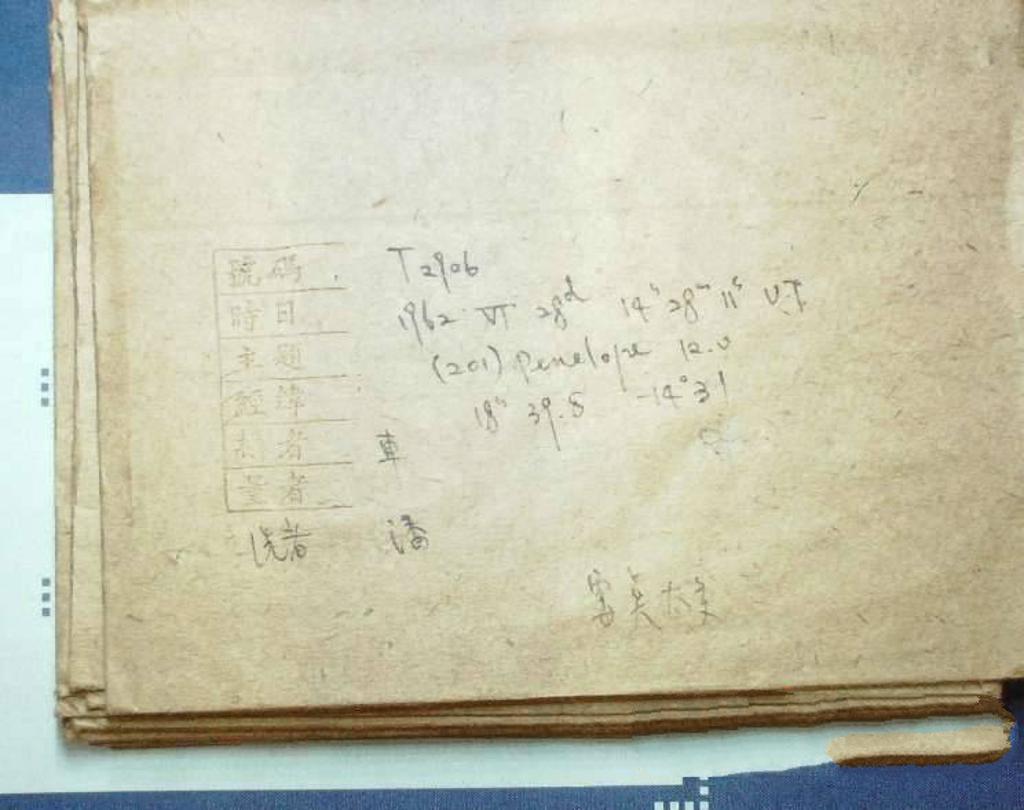 號碼 T2906
時日 1962 VI 28ᵈ 14ʰ 28ᵐ 11ˢ U.T
主題 (201) Penelope 12.0
經緯 18ʰ 39.8 -14°31
者 車
量者
洗者 潘